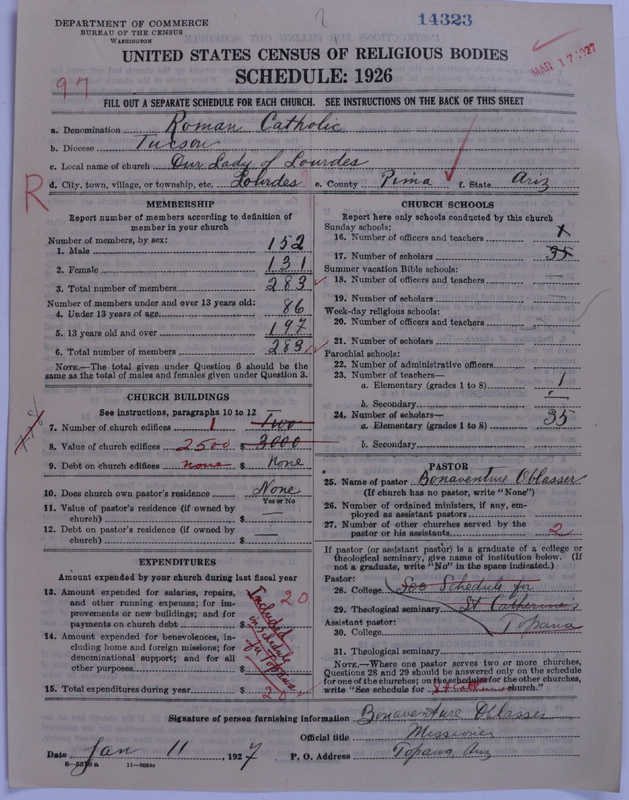 DEPARTMENT OF COMMERCE
BUREAU OF THE CENSUS
WASHINGTON
14323
MAR 17 1927
UNITED STATES CENSUS OF RELIGIOUS BODIES
SCHEDULE: 1926
97
FILL OUT A SEPARATE SCHEDULE FOR EACH CHURCH. SEE INSTRUCTIONS ON THE BACK OF THIS SHEET
a. Denomination Roman Catholic
b. Diocese Tucson
c. Local name of church Our Lady of Lourdes
R
d. City, town, village, or township, etc. Lourdes e. County Pima f. State Ariz
MEMBERSHIP
Report number of members according to definition of
member in your church
Number of members, by sex:
1. Male 152
2. Female 131
3. Total number of members 283
Number of members under and over 13 years old:
4. Under 13 years of age 86
5. 13 years old and over 197
6. Total number of members 283
NOTE.—The total given under Question 6 should be the
same as the total of males and females given under Question 3.
CHURCH BUILDINGS
See instructions, paragraphs 10 to 12
7. Number of church edifices 1 Two
8. Value of church edifices 2500 $ 3000
9. Debt on church edifices none $ None
10. Does church own pastor's residence None
Yes or No
11. Value of pastor's residence (if owned by
church) $
12. Debt on pastor's residence (if owned by
church) $
EXPENDITURES
Amount expended by your church during last fiscal year
13. Amount expended for salaries, repairs,
and other running expenses; for im-
provements or new buildings; and for
payments on church debt $ 20
14. Amount expended for benevolences, in-
cluding home and foreign missions; for
denominational support; and for all
other purposes $
15. Total expenditures during year $ 20
Included
in schedule
for Topawa
CHURCH SCHOOLS
Report here only schools conducted by this church
Sunday schools:
16. Number of officers and teachers 1
17. Number of scholars 35
Summer vacation Bible schools:
18. Number of officers and teachers
19. Number of scholars
Week-day religious schools:
20. Number of officers and teachers
21. Number of scholars
Parochial schools:
22. Number of administrative officers
23. Number of teachers—
a. Elementary (grades 1 to 8) 1
b. Secondary
24. Number of scholars—
a. Elementary (grades 1 to 8) 35
b. Secondary
PASTOR
25. Name of pastor Bonaventure Oblasser
(If church has no pastor, write "None")
26. Number of ordained ministers, if any, em-
ployed as assistant pastors
27. Number of other churches served by the
pastor or his assistants 2
If pastor (or assistant pastor) is a graduate of a college or
theological seminary, give name of institution below. (If
not a graduate, write "No" in the space indicated.)
Pastor:
28. College See Schedule for
29. Theological seminary St Catherine's
Assistant pastor: Topawa
30. College
31. Theological seminary
NOTE.—Where one pastor serves two or more churches,
Questions 28 and 29 should be answered only on the schedule
for one of the churches; on the schedules for the other churches,
write "See schedule for church."
Signature of person furnishing information Bonaventure Oblasser
Official title Missioner
Date Jan 11, 1927 P. O. Address Topawa, Ariz
8—5578a 11—9084